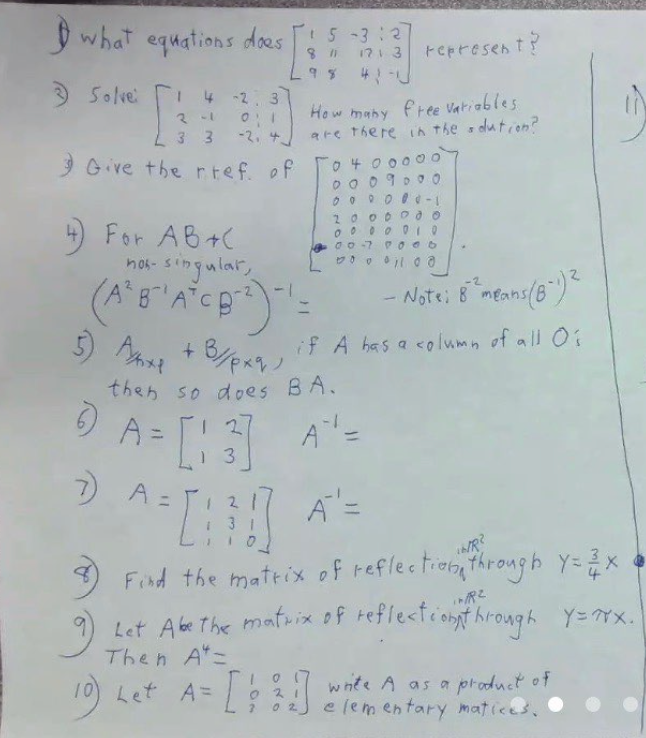 1) What equations does [ 1 5 -3 : 2 ] represent?
[ 8 11 17 : 3 ]
[ 9 8 4 : -1 ]
2) Solve: [ 1 4 -2 : 3 ] How many free variables
[ 2 -1 0 : 1 ] are there in the solution?
[ 3 3 -2 : 4 ]
3) Give the rref. of [ 0 4 0 0 0 0 0 ]
[ 0 0 0 9 0 0 0 ]
[ 0 0 0 0 0 0 -1 ]
[ 2 0 0 0 0 0 0 ]
[ 0 0 0 0 0 1 0 ]
[ 0 0 -7 0 0 0 0 ]
[ 0 0 0 0 11 0 0 ] .
4) For AB+C
non-singular,
(A² B⁻¹ Aᵀ C B⁻²)⁻¹ = - Note; B⁻² means (B⁻¹)²
5) A/nxp + B/pxq, if A has a column of all 0's
then so does BA.
6) A = [ 1 2 ] A⁻¹ =
[ 1 3 ]
7) A = [ 1 2 1 ] A⁻¹ =
[ 1 3 1 ]
[ 1 1 0 ]
8) Find the matrix of reflection in ℝ² through Y = 3/4 x
9) Let A be the matrix of reflection in ℝ² through Y = πx.
Then A⁴ =
10) Let A = [ 1 0 1 ] write A as a product of
[ 0 2 1 ] elementary matices.
[ 2 0 2 ]
11)